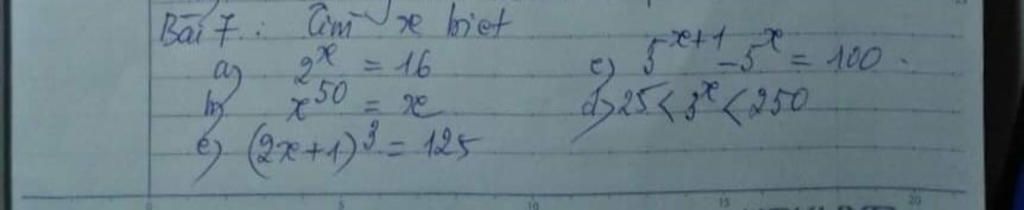 Bài 7: Tìm x biết
a) 2^x = 16
c) 5^{x+1} - 5^x = 100.
b) x^{50} = x
d) 25 < 3^x < 250
e) (2x+1)^3 = 125
5 10 15 20